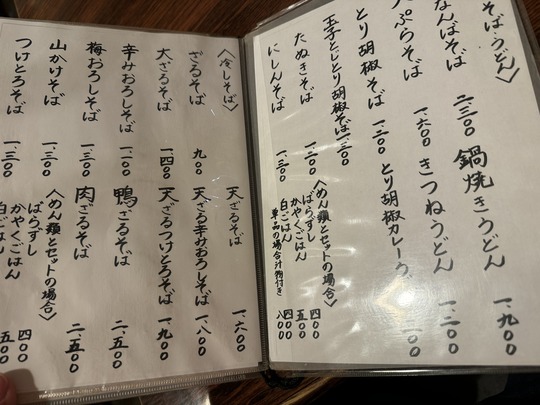 そば・うどん〉
なんばそば
二、三〇〇
鍋焼きうどん
一、九〇〇
天ぷらそば
一、六〇〇
きつねうどん
一、二〇〇
とり胡椒そば
一、三〇〇
とり胡椒カレーう
〇〇
玉子とじとり胡椒そば
一、三〇〇
〈めん類とセットの場合〉
たぬきそば
一、二〇〇
ばらずし
四〇〇
かやくごはん
五〇〇
白ごはん
四〇〇
単品の場合汁物付き
八〇〇
にしんそば
一、三〇〇
〈冷しそば〉
天ざるそば
一、六〇〇
ざるそば
九〇〇
天ざる辛みおろしそば
一、八〇〇
大ざるそば
一、四〇〇
天ざるつけとろそば
一、九〇〇
辛みおろしそば
一、二〇〇
鴨ざるそば
二、五〇〇
梅おろしそば
一、三〇〇
肉ざるそば
二、五〇〇
山かけそば
一、三〇〇
〈めん類とセットの場合〉
つけとろそば
一、三〇〇
ばらずし
四〇〇
かやくごはん
五〇〇
白ごはん